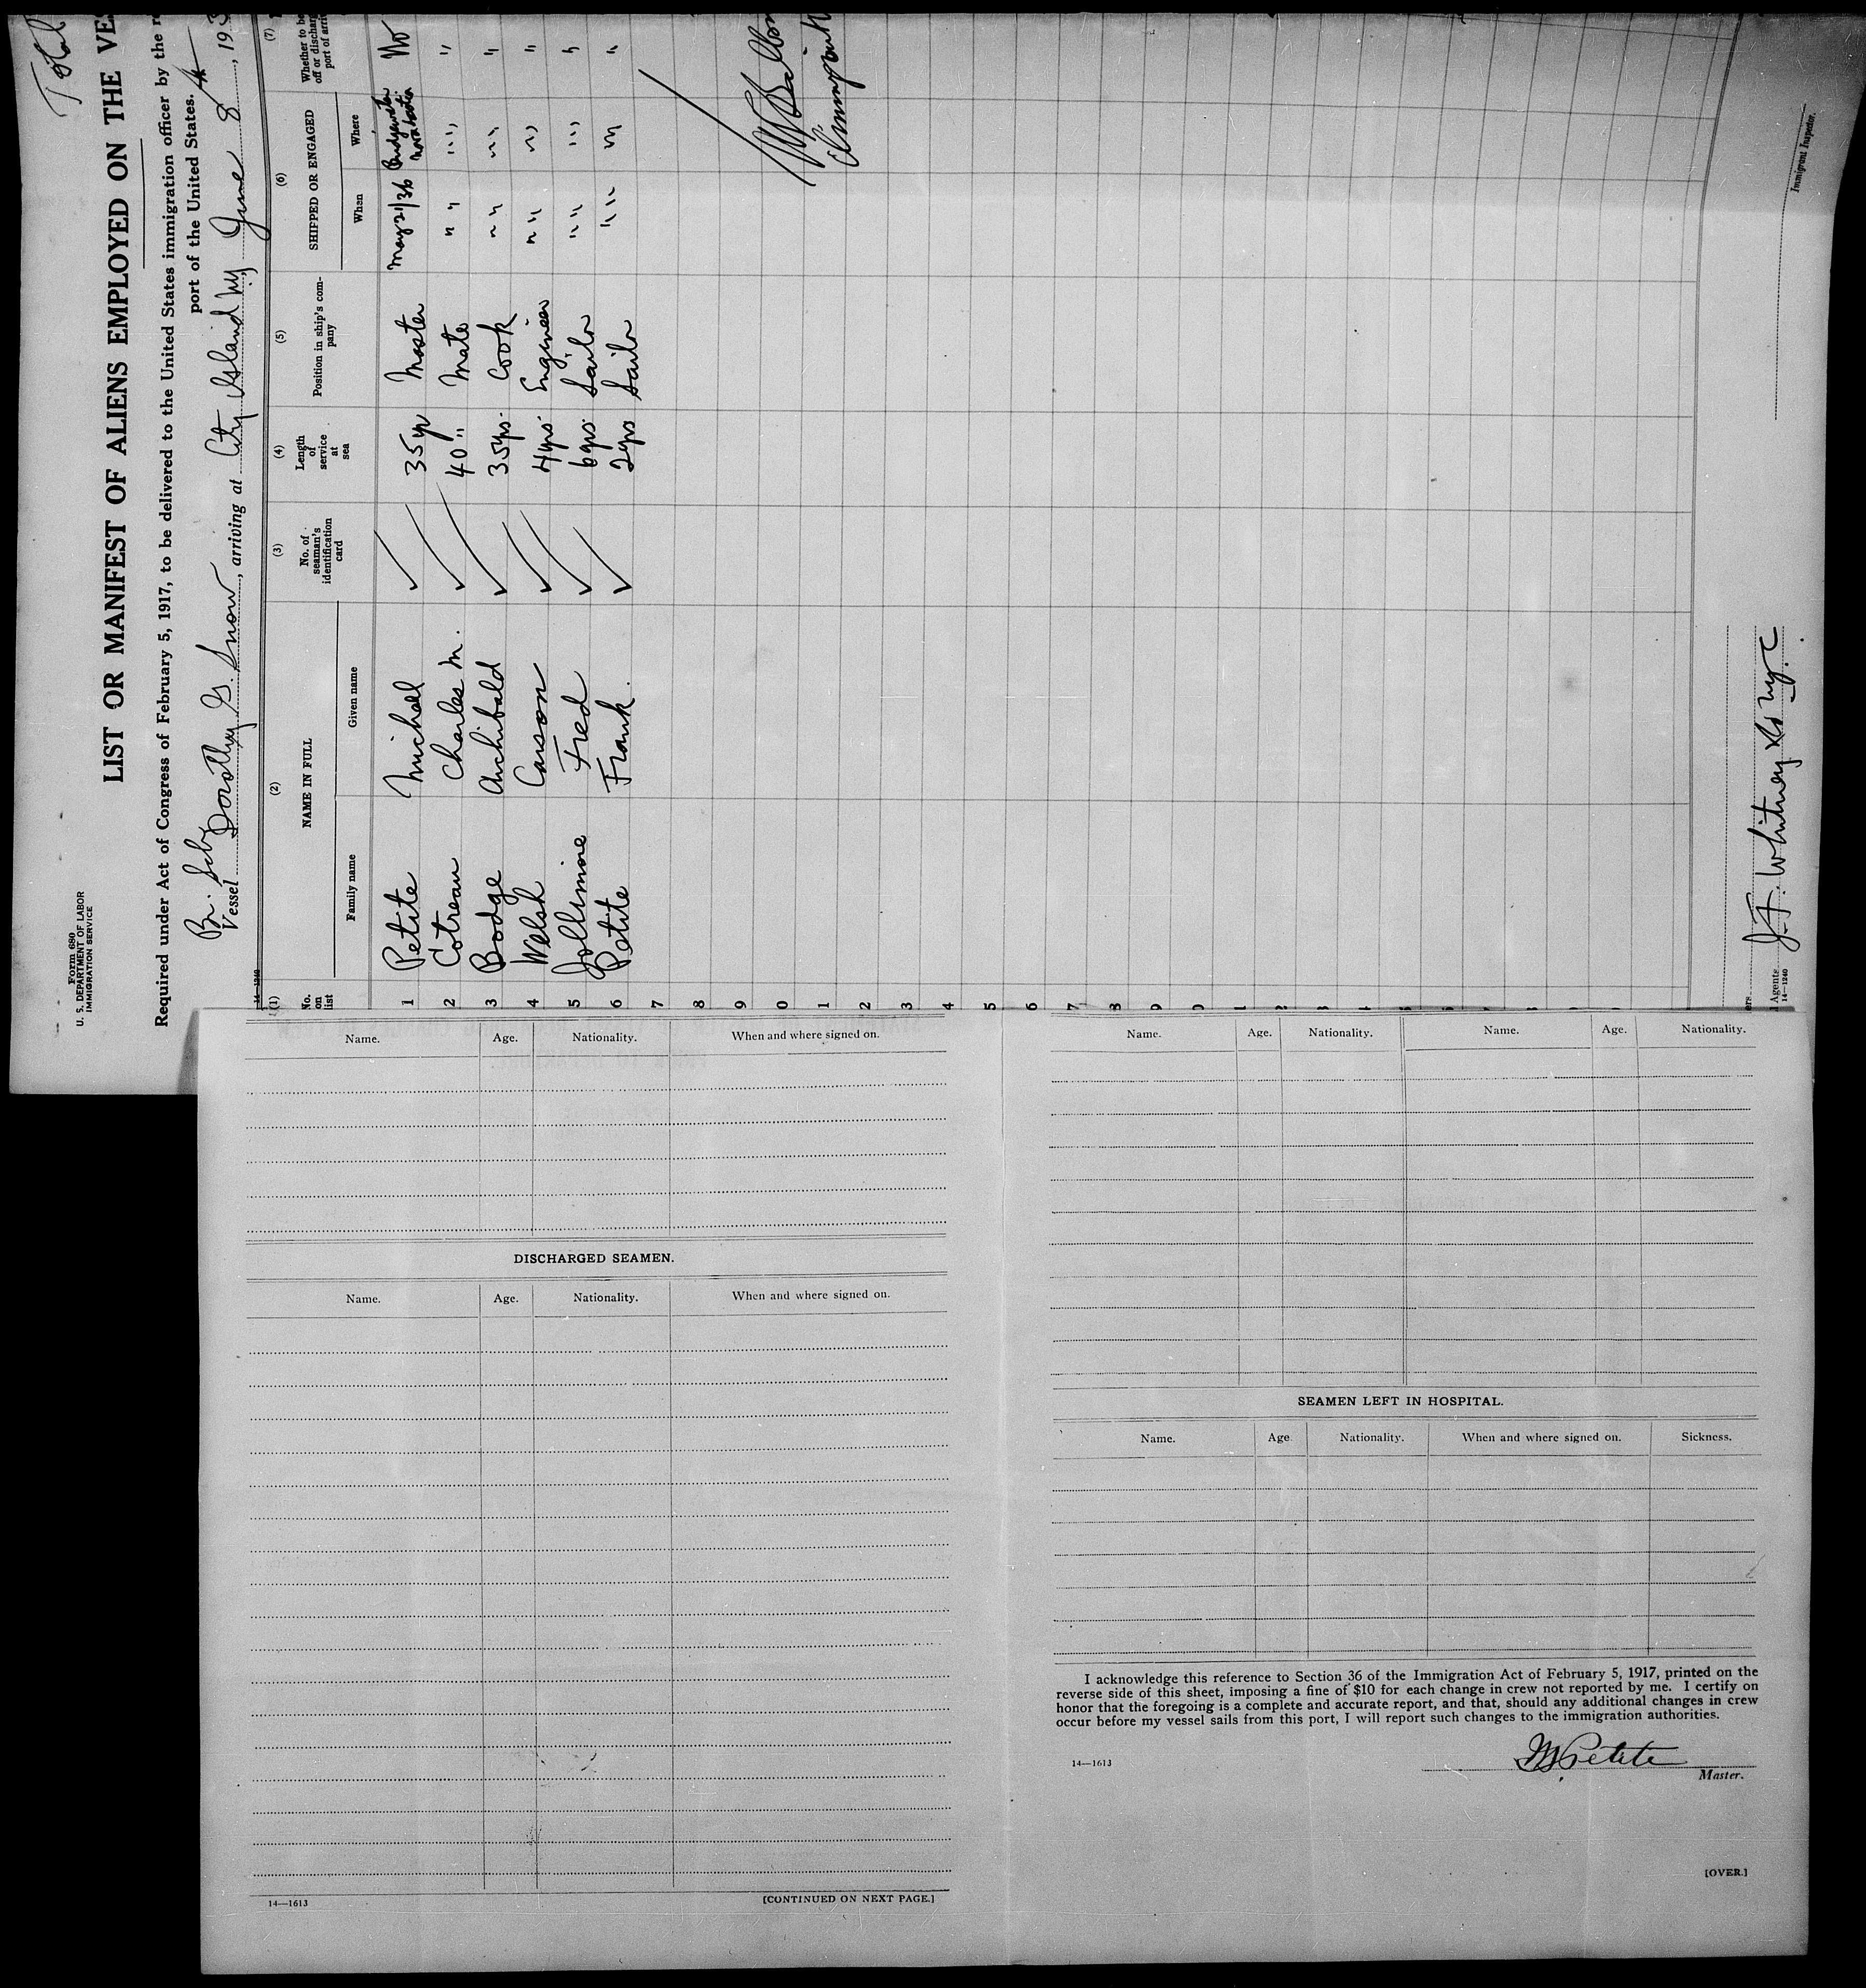 Total
Form 680
U. S. DEPARTMENT OF LABOR
IMMIGRATION SERVICE
LIST OR MANIFEST OF ALIENS EMPLOYED ON THE VE
Required under Act of Congress of February 5, 1917, to be delivered to the United States immigration officer by the r
port of the United States.
Br. Sch
Vessel Dorothy G. Snow, arriving at City Island NY, June 8, 193
14-1240
(1) (2) (3) (4) (5) (6) (7)
No. on list NAME IN FULL No. of seaman's identification card Length of service at sea Position in ship's company SHIPPED OR ENGAGED Whether to be
off or discharg
port of arriv
Family name Given name When Where
1 Petite Michael 35 yr Master May 21/36 Bridgewater Nova Scotia No
2 Cotreau Charles M. 40 " Mate " " " " " "
3 Bodge Archibald 35 yrs. Cook " " " " "
4 Welsh Carson 4 yrs. Engineer " " " " "
5 Jollimore Fred 6 yrs. Sailor " " " " "
6 Petite Frank. 2 yrs Sailor " " " " "
7
8
9
0
1
2
3
4
5
6
7
8
9
0
1
2
3
4
J.F. Whitney & Co NYC
Agents
14-1240
Immigrant Inspector.
Name. Age. Nationality. When and where signed on.
DISCHARGED SEAMEN.
Name. Age. Nationality. When and where signed on.
14—1613 [CONTINUED ON NEXT PAGE.]
Name. Age. Nationality. Name. Age. Nationality.
SEAMEN LEFT IN HOSPITAL.
Name. Age Nationality. When and where signed on. Sickness.
I acknowledge this reference to Section 36 of the Immigration Act of February 5, 1917, printed on the
reverse side of this sheet, imposing a fine of $10 for each change in crew not reported by me. I certify on
honor that the foregoing is a complete and accurate report, and that, should any additional changes in crew
occur before my vessel sails from this port, I will report such changes to the immigration authorities.
14—1613
M Petite
Master.
[OVER.]